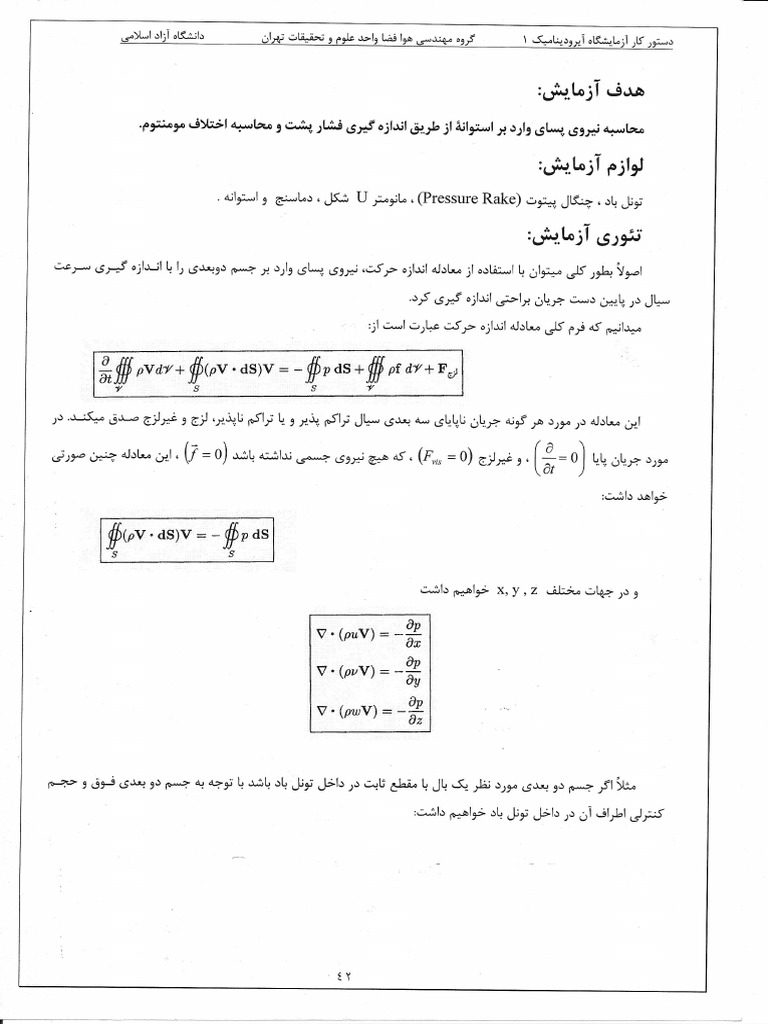 دستور کار آزمایشگاه آیرودینامیک ۱ گروه مهندسی هوا فضا واحد علوم و تحقیقات تهران دانشگاه آزاد اسلامی
هدف آزمایش:
محاسبه نیروی پسای وارد بر استوانۀ از طریق اندازه گیری فشار پشت و محاسبه اختلاف مومنتوم.
لوازم آزمایش:
تونل باد ، چنگال پیتوت (Pressure Rake) ، مانومتر U شکل ، دماسنج و استوانه .
تئوری آزمایش:
اصولاً بطور کلی میتوان با استفاده از معادله اندازه حرکت، نیروی پسای وارد بر جسم دوبعدی را با انـدازه گیـری سـرعت
سیال در پایین دست جریان براحتی اندازه گیری کرد.
میدانیم که فرم کلی معادله اندازه حرکت عبارت است از:
∂/∂t ∰_𝒱 ρV d𝒱 + ∯_S (ρV • dS)V = − ∯_S p dS + ∰_𝒱 ρf d𝒱 + F لزج
این معادله در مورد هر گونه جریان ناپایای سه بعدی سیال تراکم پذیر و یا تراکم ناپذیر، لزج و غیرلزج صـدق میکنـد. در
مورد جریان پایا (∂/∂t = 0) ، و غیرلزج (F_vis = 0) ، که هیچ نیروی جسمی نداشته باشد (f⃗ = 0) ، این معادله چنین صورتی
خواهد داشت:
∯_S (ρV • dS)V = − ∯_S p dS
و در جهات مختلف x, y , z خواهیم داشت
∇ • (ρuV) = −∂p/∂x
∇ • (ρνV) = −∂p/∂y
∇ • (ρwV) = −∂p/∂z
مثلاً اگر جسم دو بعدی مورد نظر یک بال با مقطع ثابت در داخل تونل باد باشد با توجه به جسم دو بعدی فـوق و حجـم
کنترلی اطراف آن در داخل تونل باد خواهیم داشت:
٤٢